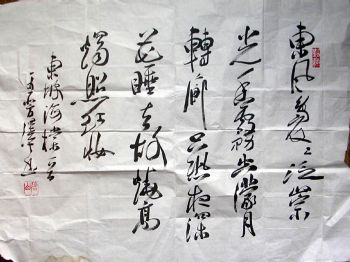 東風袅々泛崇
光香霧空濛月
轉廊只恐夜深
花睡去故燒高
燭照紅妝
東坡海棠